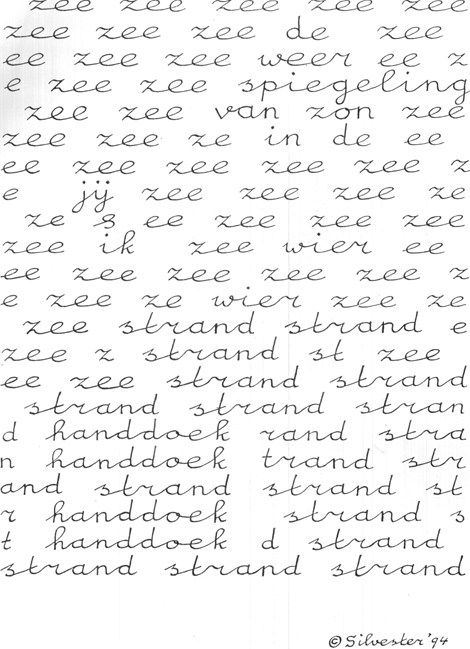 zee zee zee zee zee
zee zee zee de zee
ee zee zee weer ee z
e zee zee spiegeling
zee zee van zon zee
zee zee ze in de ee
ee zee zee zee zee z
e jij zee zee zee ze
ze ee zee zee zee
zee ik zee wier ee
ee zee zee zee zee z
e zee ze wier zee ze
zee strand strand e
zee z strand st zee
ee zee strand strand
strand strand stran
d handdoek rand stra
n handdoek trand str
and strand strand st
r handdoek strand s
t handdoek d strand
strand strand strand
© Silvester '94